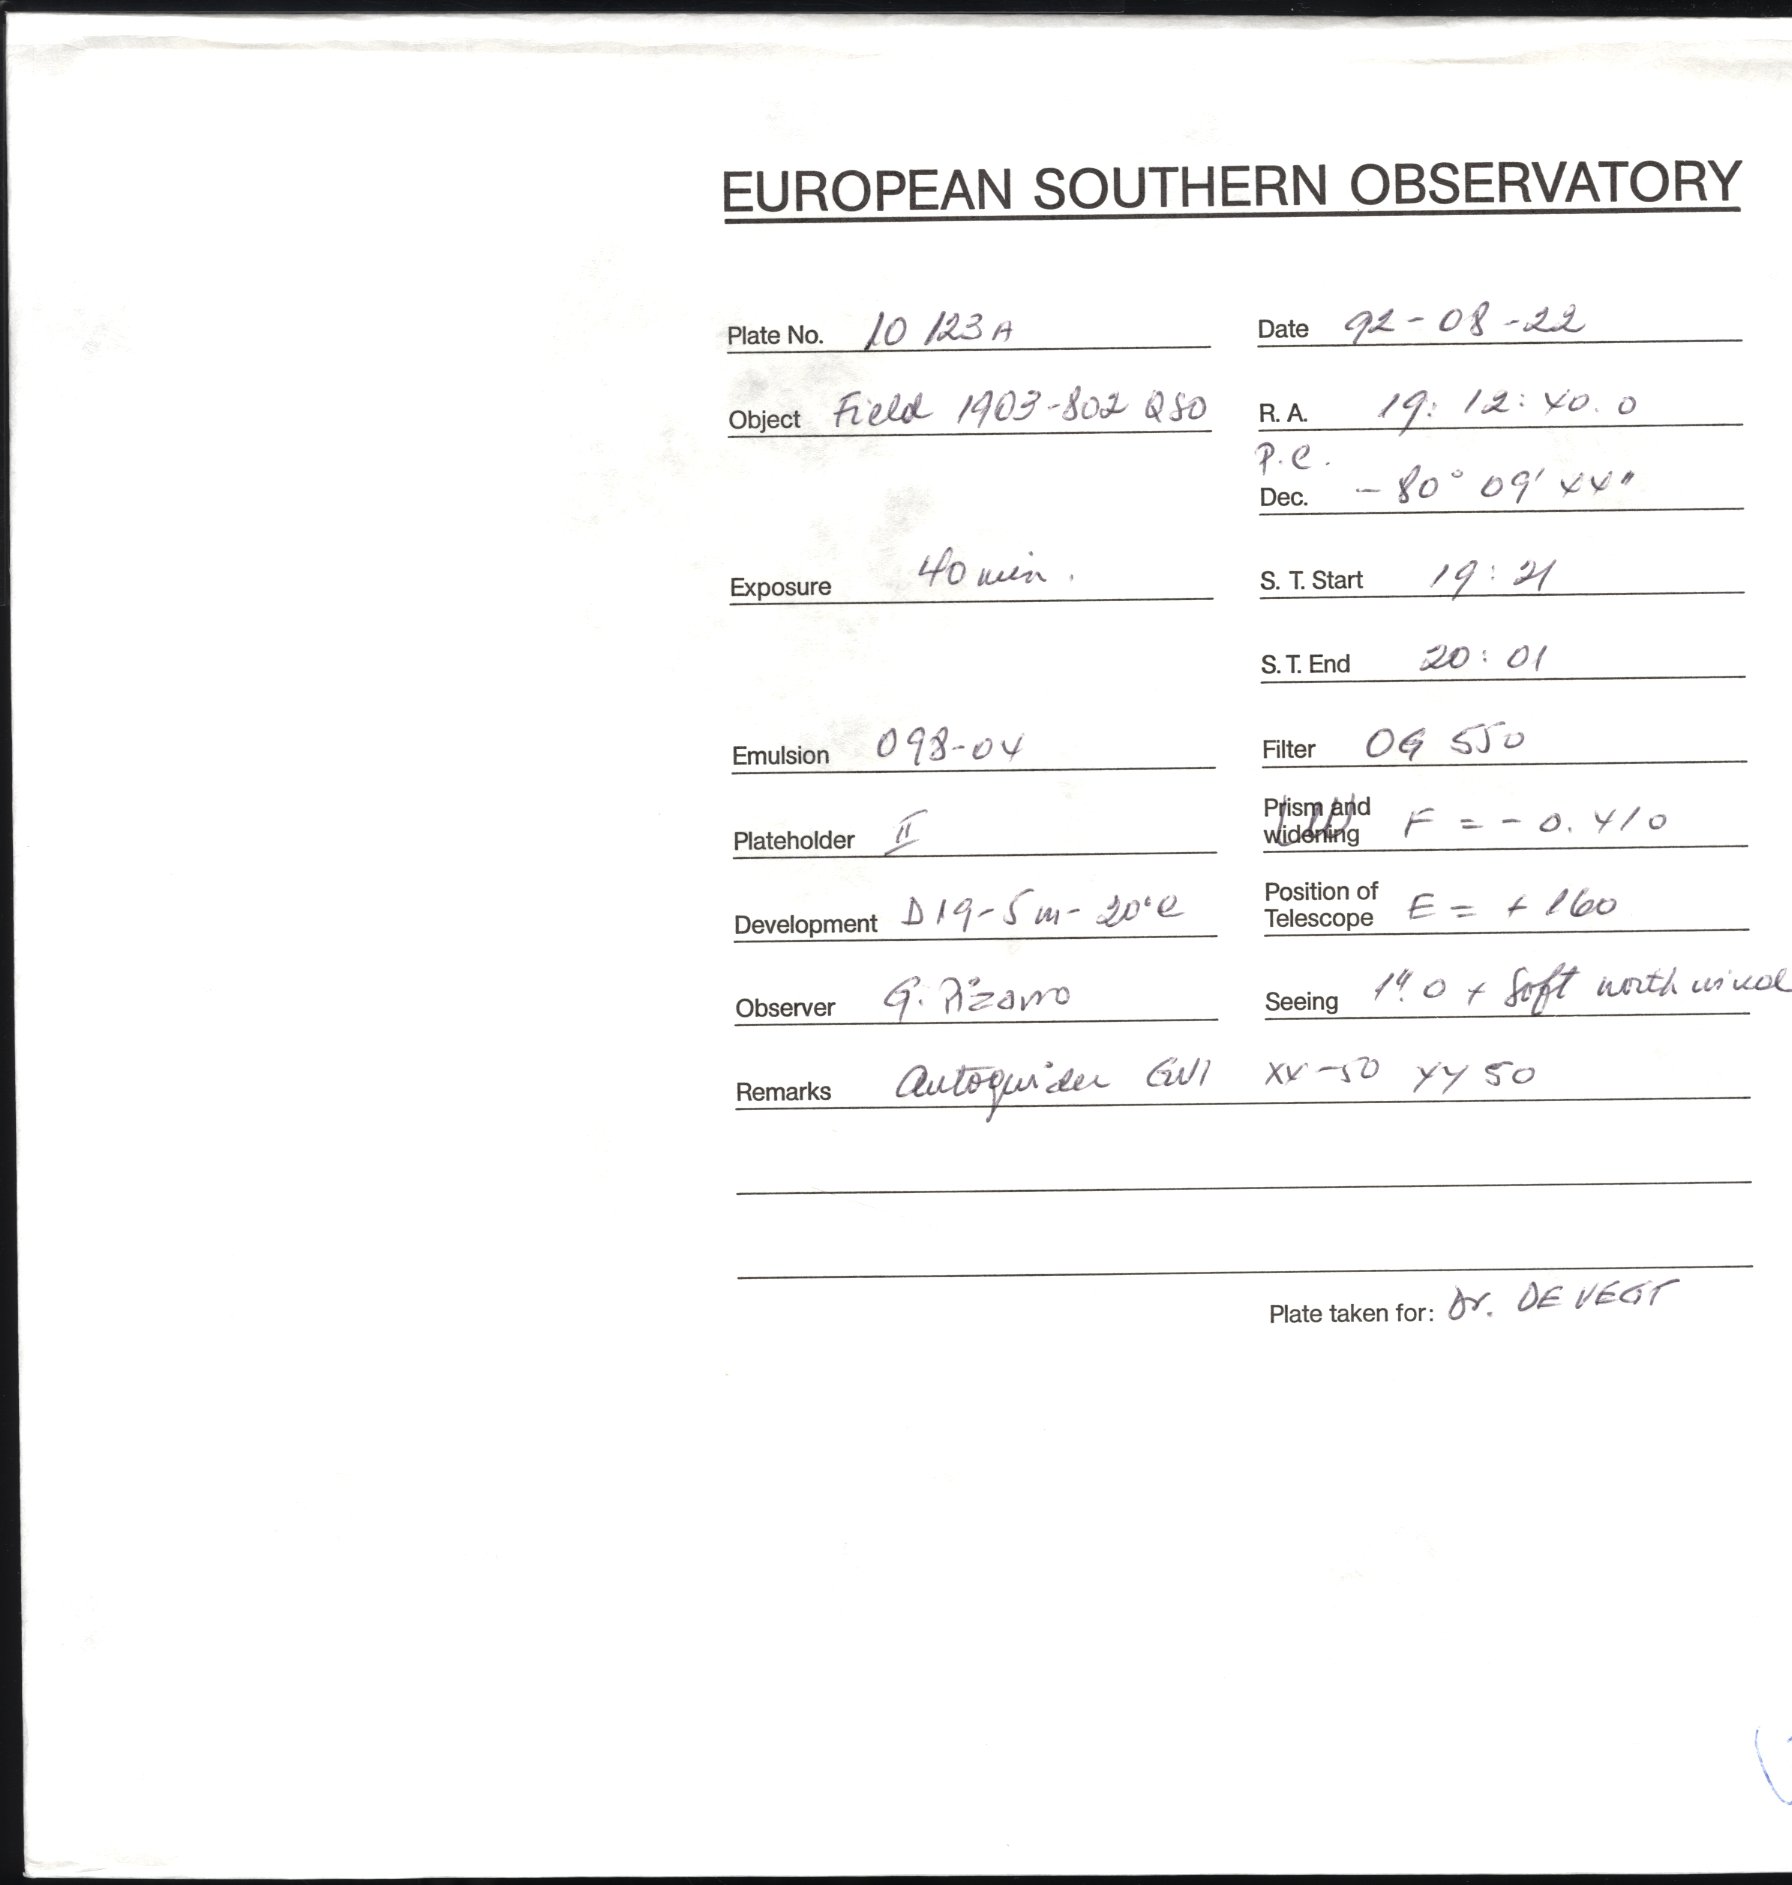 EUROPEAN SOUTHERN OBSERVATORY
Plate No. 10 123 A Date 92-08-22
Object Field 1903-802 QSO R. A. 19: 12: 40. 0
P.C.
Dec. - 80° 09' 44"
Exposure 40 min. S. T. Start 19: 21
S. T. End 20: 01
Emulsion 098-04 Filter OG 550
Plateholder II Prism and widening F = - 0. 410
Development D19-5m-20°C Position of Telescope E = + 160
Observer G. Pizarro Seeing 1".0 + Soft north wind
Remarks Autoguider GVI XX-50 YY 50
Plate taken for: Dr. DE VEGT